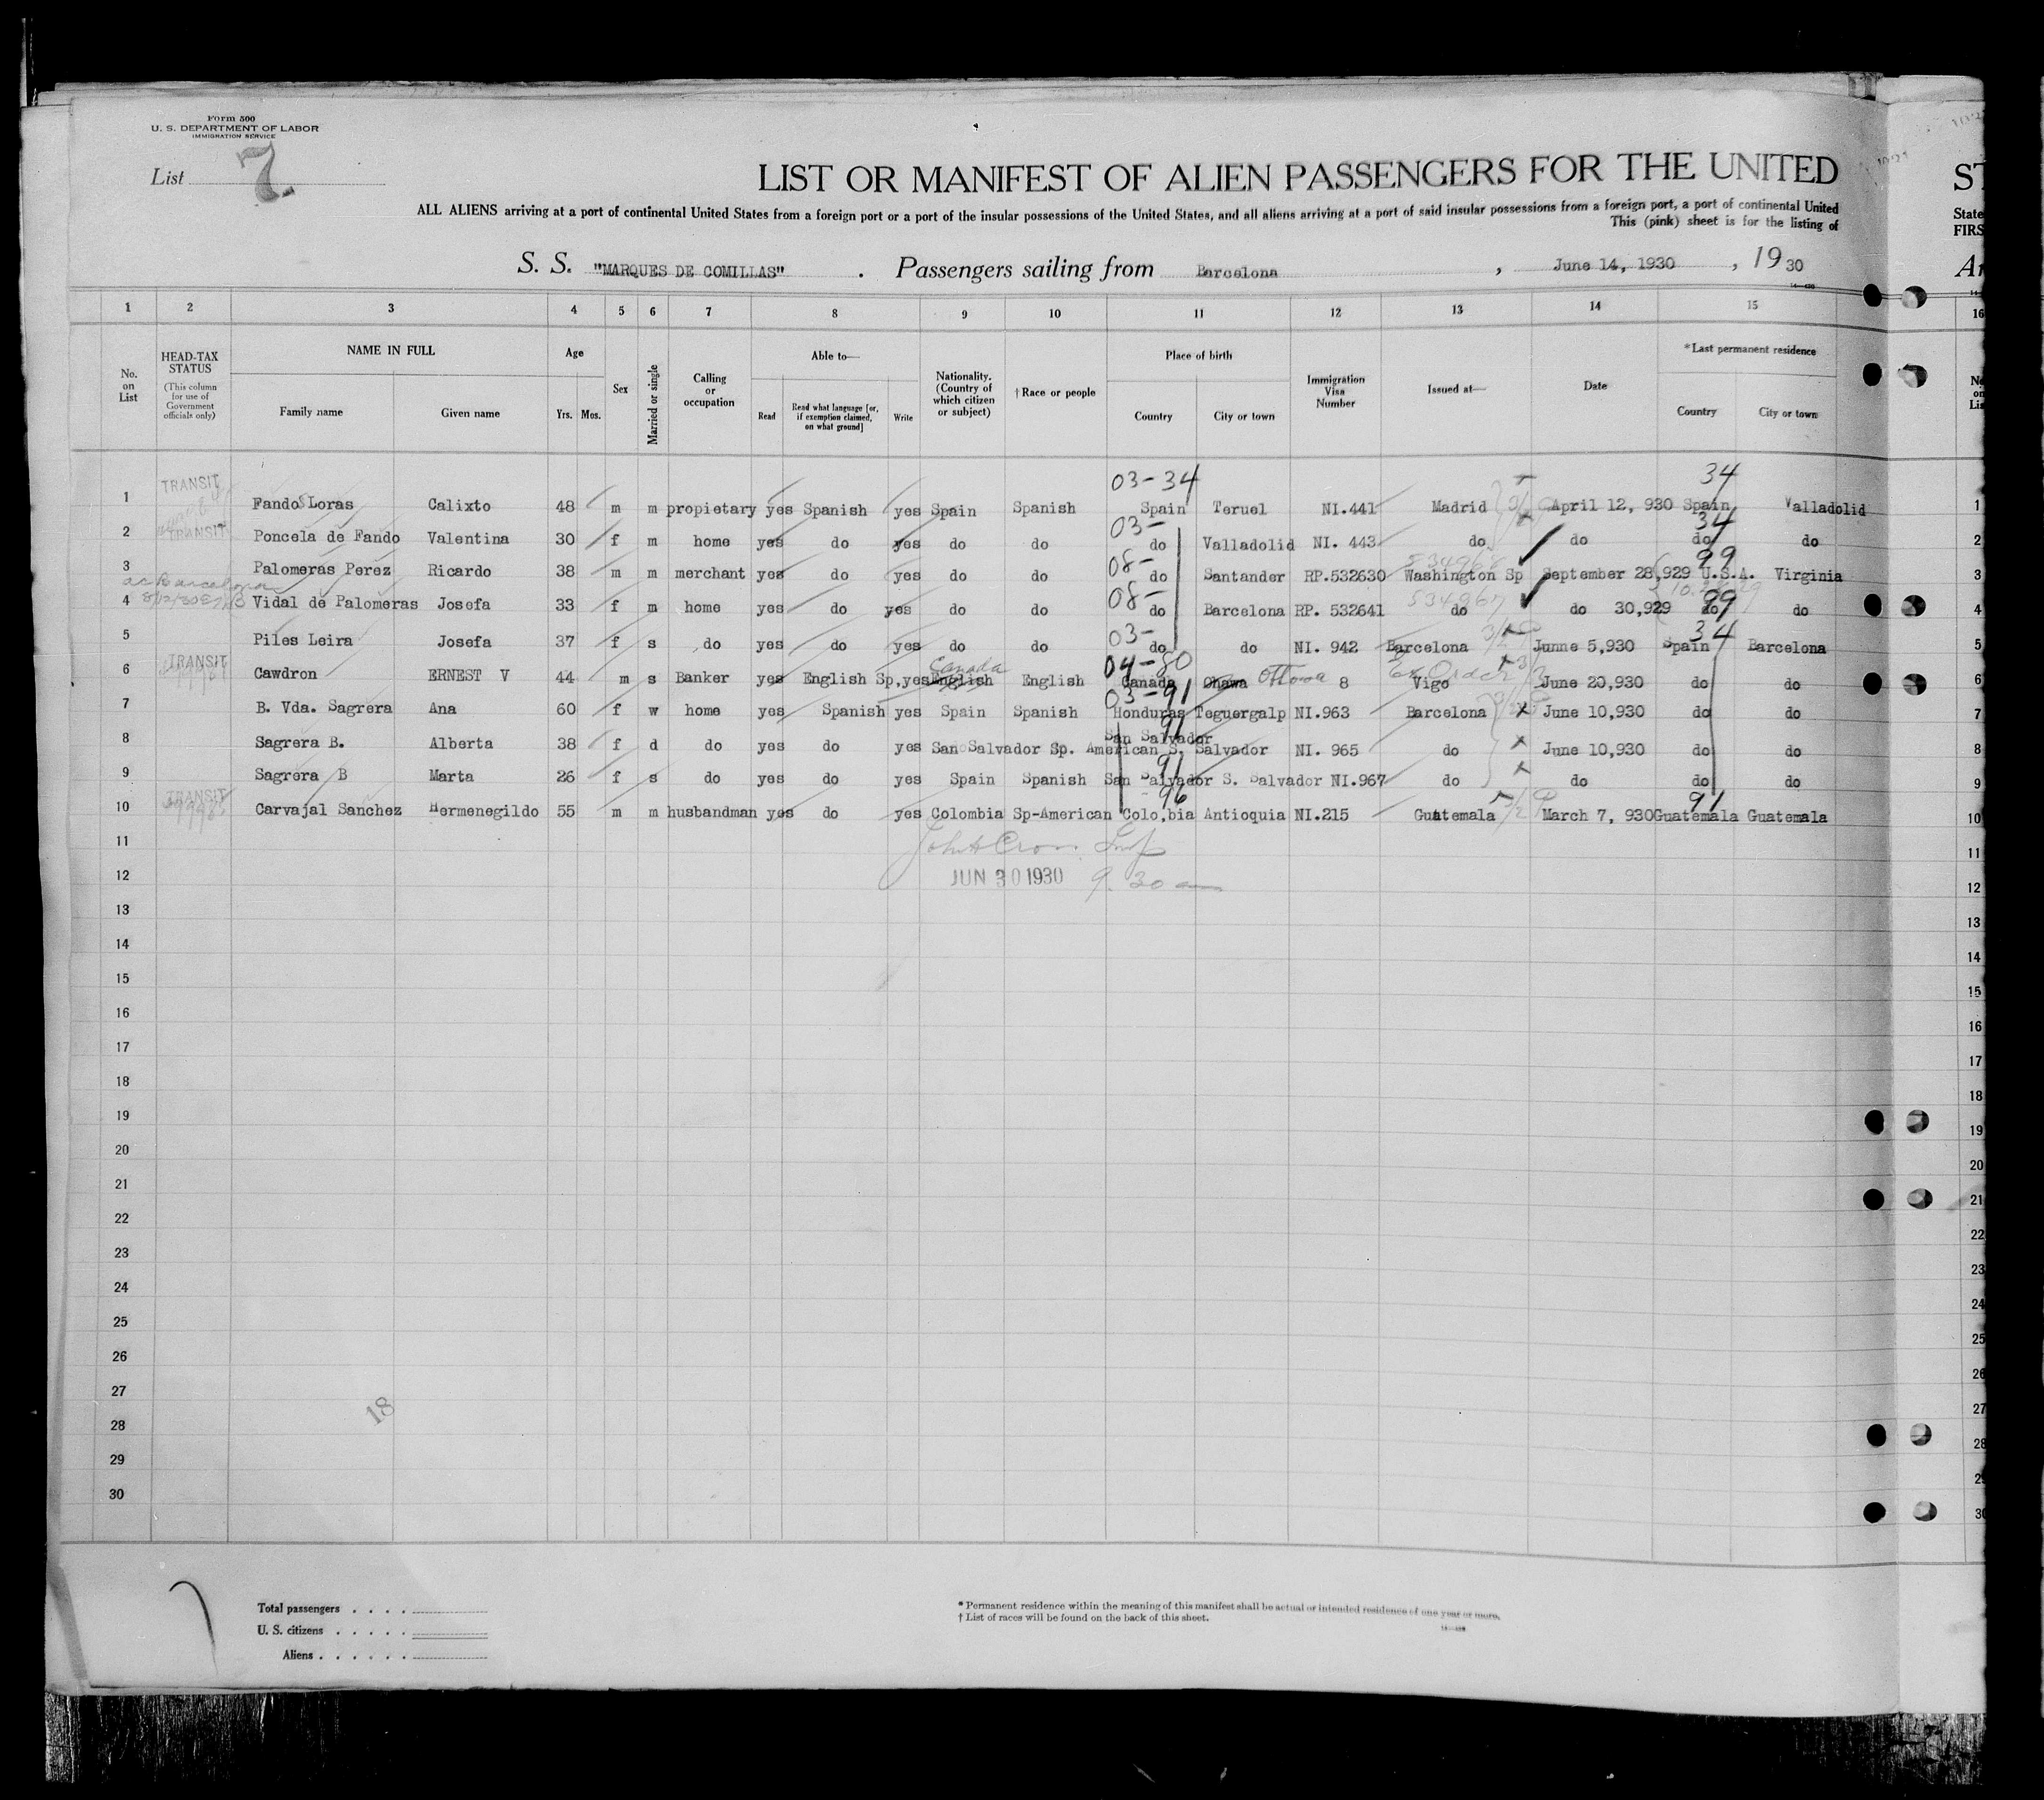 Form 500
U. S. DEPARTMENT OF LABOR
IMMIGRATION SERVICE
List 7.
LIST OR MANIFEST OF ALIEN PASSENGERS FOR THE UNITED
ST
ALL ALIENS arriving at a port of continental United States from a foreign port or a port of the insular possessions of the United States, and all aliens arriving at a port of said insular possessions from a foreign port, a port of continental United
State
This (pink) sheet is for the listing of
FIRS
S. S. "MARQUES DE COMILLAS" . Passengers sailing from Barcelona , June 14, 1930 , 19 30
1 2 3 4 5 6 7 8 9 10 11 12 13 14 15 16
No. on List
HEAD-TAX STATUS (This column for use of Government officials only)
NAME IN FULL Family name Given name
Age Yrs. Mos.
Sex
Married or single
Calling or occupation
Able to— Read Read what language [or, if exemption claimed, on what ground] Write
Nationality. (Country of which citizen or subject)
†Race or people
Place of birth Country City or town
Immigration Visa Number
Issued at—
Date
*Last permanent residence Country City or town
03-34 34
1 TRANSIT Fando Loras Calixto 48 m m propietary yes Spanish yes Spain Spanish Spain Teruel NI.441 Madrid April 12, 930 Spain Valladolid 1
03- 34
2 TRANSIT Poncela de Fando Valentina 30 f m home yes do yes do do do Valladolid NI. 443 do do do do 2
08- 534968 99
3 Palomeras Perez Ricardo 38 m m merchant yes do yes do do do Santander RP.532630 Washington Sp September 28,929 U.S.A. Virginia 3
08- 534967 99
4 Vidal de Palomeras Josefa 33 f m home yes do yes do do do Barcelona RP. 532641 do do 30,929 do do 4
03- 34
5 Piles Leira Josefa 37 f s do yes do yes do do do do NI. 942 Barcelona Junne 5,930 Spain Barcelona 5
Canada 04-80 Ottowa Ex Order
6 TRANSIT Cawdron ERNEST V 44 m s Banker yes English Sp,yes English English Canada Ohawa 8 Vigo June 20,930 do do 6
03-91
7 B. Vda. Sagrera Ana 60 f w home yes Spanish yes Spain Spanish Honduras Teguergalp NI.963 Barcelona June 10,930 do do 7
91
8 Sagrera B. Alberta 38 f d do yes do yes San Salvador Sp. American San Salvador S. Salvador NI. 965 do June 10,930 do do 8
91
9 Sagrera B Marta 26 f s do yes do yes Spain Spanish San Salvador S. Salvador NI.967 do do do do 9
96 91
10 TRANSIT Carvajal Sanchez Hermenegildo 55 m m husbandman yes do yes Colombia Sp-American Colo,bia Antioquia NI.215 Guatemala March 7, 930 Guatemala Guatemala 10
11 11
12 JUN 30 1930 9.30 am 12
13 13
14 14
15 15
16 16
17 17
18 18
19 19
20 20
21 21
22 22
23 23
24 24
25 25
26 26
27 27
18
28 28
29 29
30 30
Total passengers . . . .
U. S. citizens . . . . .
Aliens . . . . . .
* Permanent residence within the meaning of this manifest shall be actual or intended residence of one year or more.
† List of races will be found on the back of this sheet.